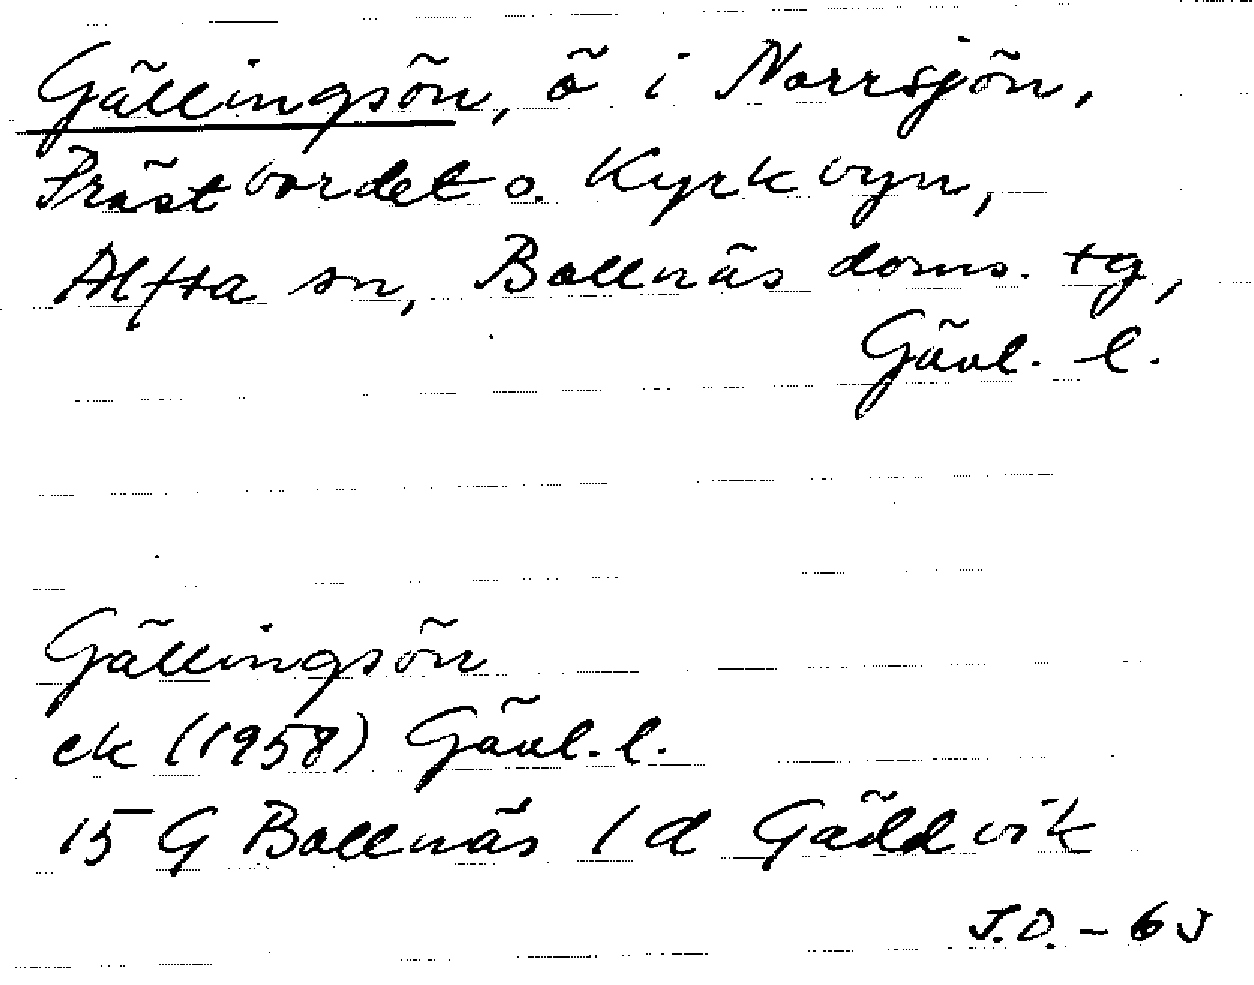 Gällingsön, ö i Norrsjön,
Prästbordet o. Kyrkbyn,
Alfta sn, Bollnäs doms. tg,
Gävl. l.
Gällingsön
ek (1958) Gävl. l.
15 G Bollnäs 1 d Gäddvik
J.O. - 63